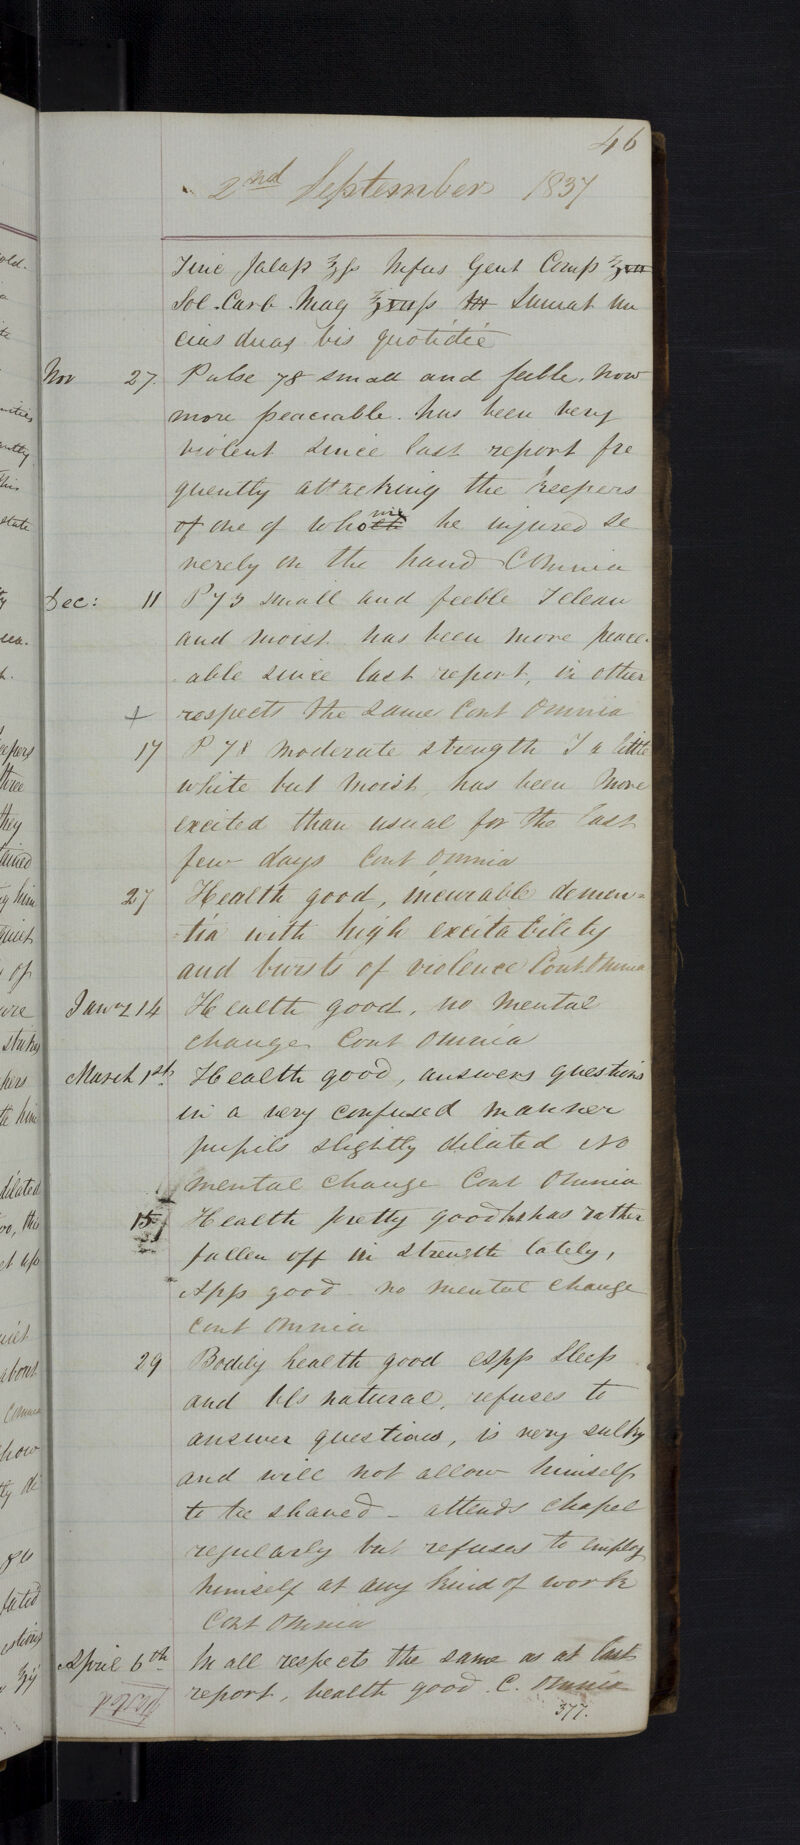 46
2nd September 1837
Tinc Jalap ʒfs Infus Gent Comp ʒvii
Sol. Carb. Mag ʒvufs Sumat un
cias duas bis quotidie
Nov 27. Pulse 78 small and feeble. Now
more peaceable. has been very
violent since last report fre
quently attacking the keepers
of one of who he injured se
verely on the hand C Omnia
Dec: 11 P 73 small and feeble T clean
and moist. has been more peace-
able since last report, in other
+ respects the same Cont Omnia
17 P 78 moderate strength T a little
white but moist, has been more
excited than usual for the last
few days Cont Omnia
27 Health good, incurable demen=
tia with high excitability
and bursts of violence Cont. Omnia
Jany 14 Health good, no mental
change Cont Omnia
March 1st. Health good, answers questions
in a very confused manner
pupils slightly dilated No
mental change Cont Omnia
15 Health pretty good has rather
fallen off in strength lately,
App good - no mental change
Cont Omnia
29 Bodily health good App Sleep
and Bls natural, refuses to
answer questions, is very sulky
and will not allow himself
to be shaved - attends chapel
regularly but refuses to employ
himself at any kind of work
Cont Omnia
April 6th. In all respects the same as at last
report, health good. C. Omnia
377.